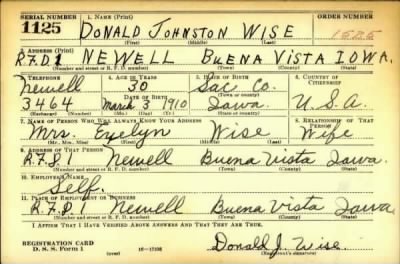 SERIAL NUMBER 1. NAME (Print) ORDER NUMBER
1125 DONALD JOHNSTON WISE 1525
(First) (Middle) (Last)
2. ADDRESS (Print)
R.F.D1 NEWELL BUENA VISTA IOWA.
(Number and street or R. F. D. number) (Town) (County) (State)
3. TELEPHONE 4. AGE IN YEARS 5. PLACE OF BIRTH 6. COUNTRY OF CITIZENSHIP
Newell 30 Sac Co.
DATE OF BIRTH
3464 March 3 1910 Iowa. U.S.A.
7. NAME OF PERSON WHO WILL ALWAYS KNOW YOUR ADDRESS 8. RELATIONSHIP OF THAT PERSON
Mrs. Evelyn Wise Wife
(Mr., Mrs., Miss) (First) (Middle) (Last)
9. ADDRESS OF THAT PERSON
R.F.D.1 Newell Buena Vista Iowa.
(Number and street or R. F. D. number) (Town) (County) (State)
10. EMPLOYER'S NAME
Self.
11. PLACE OF EMPLOYMENT OR BUSINESS
R.F.D.1 Newell Buena Vista Iowa
(Number and street or R. F. D. number) (Town) (County) (State)
I AFFIRM THAT I HAVE VERIFIED ABOVE ANSWERS AND THAT THEY ARE TRUE.
REGISTRATION CARD
D. S. S. Form 1 (over) 16-17105 Donald J. Wise
(Registrant's signature)